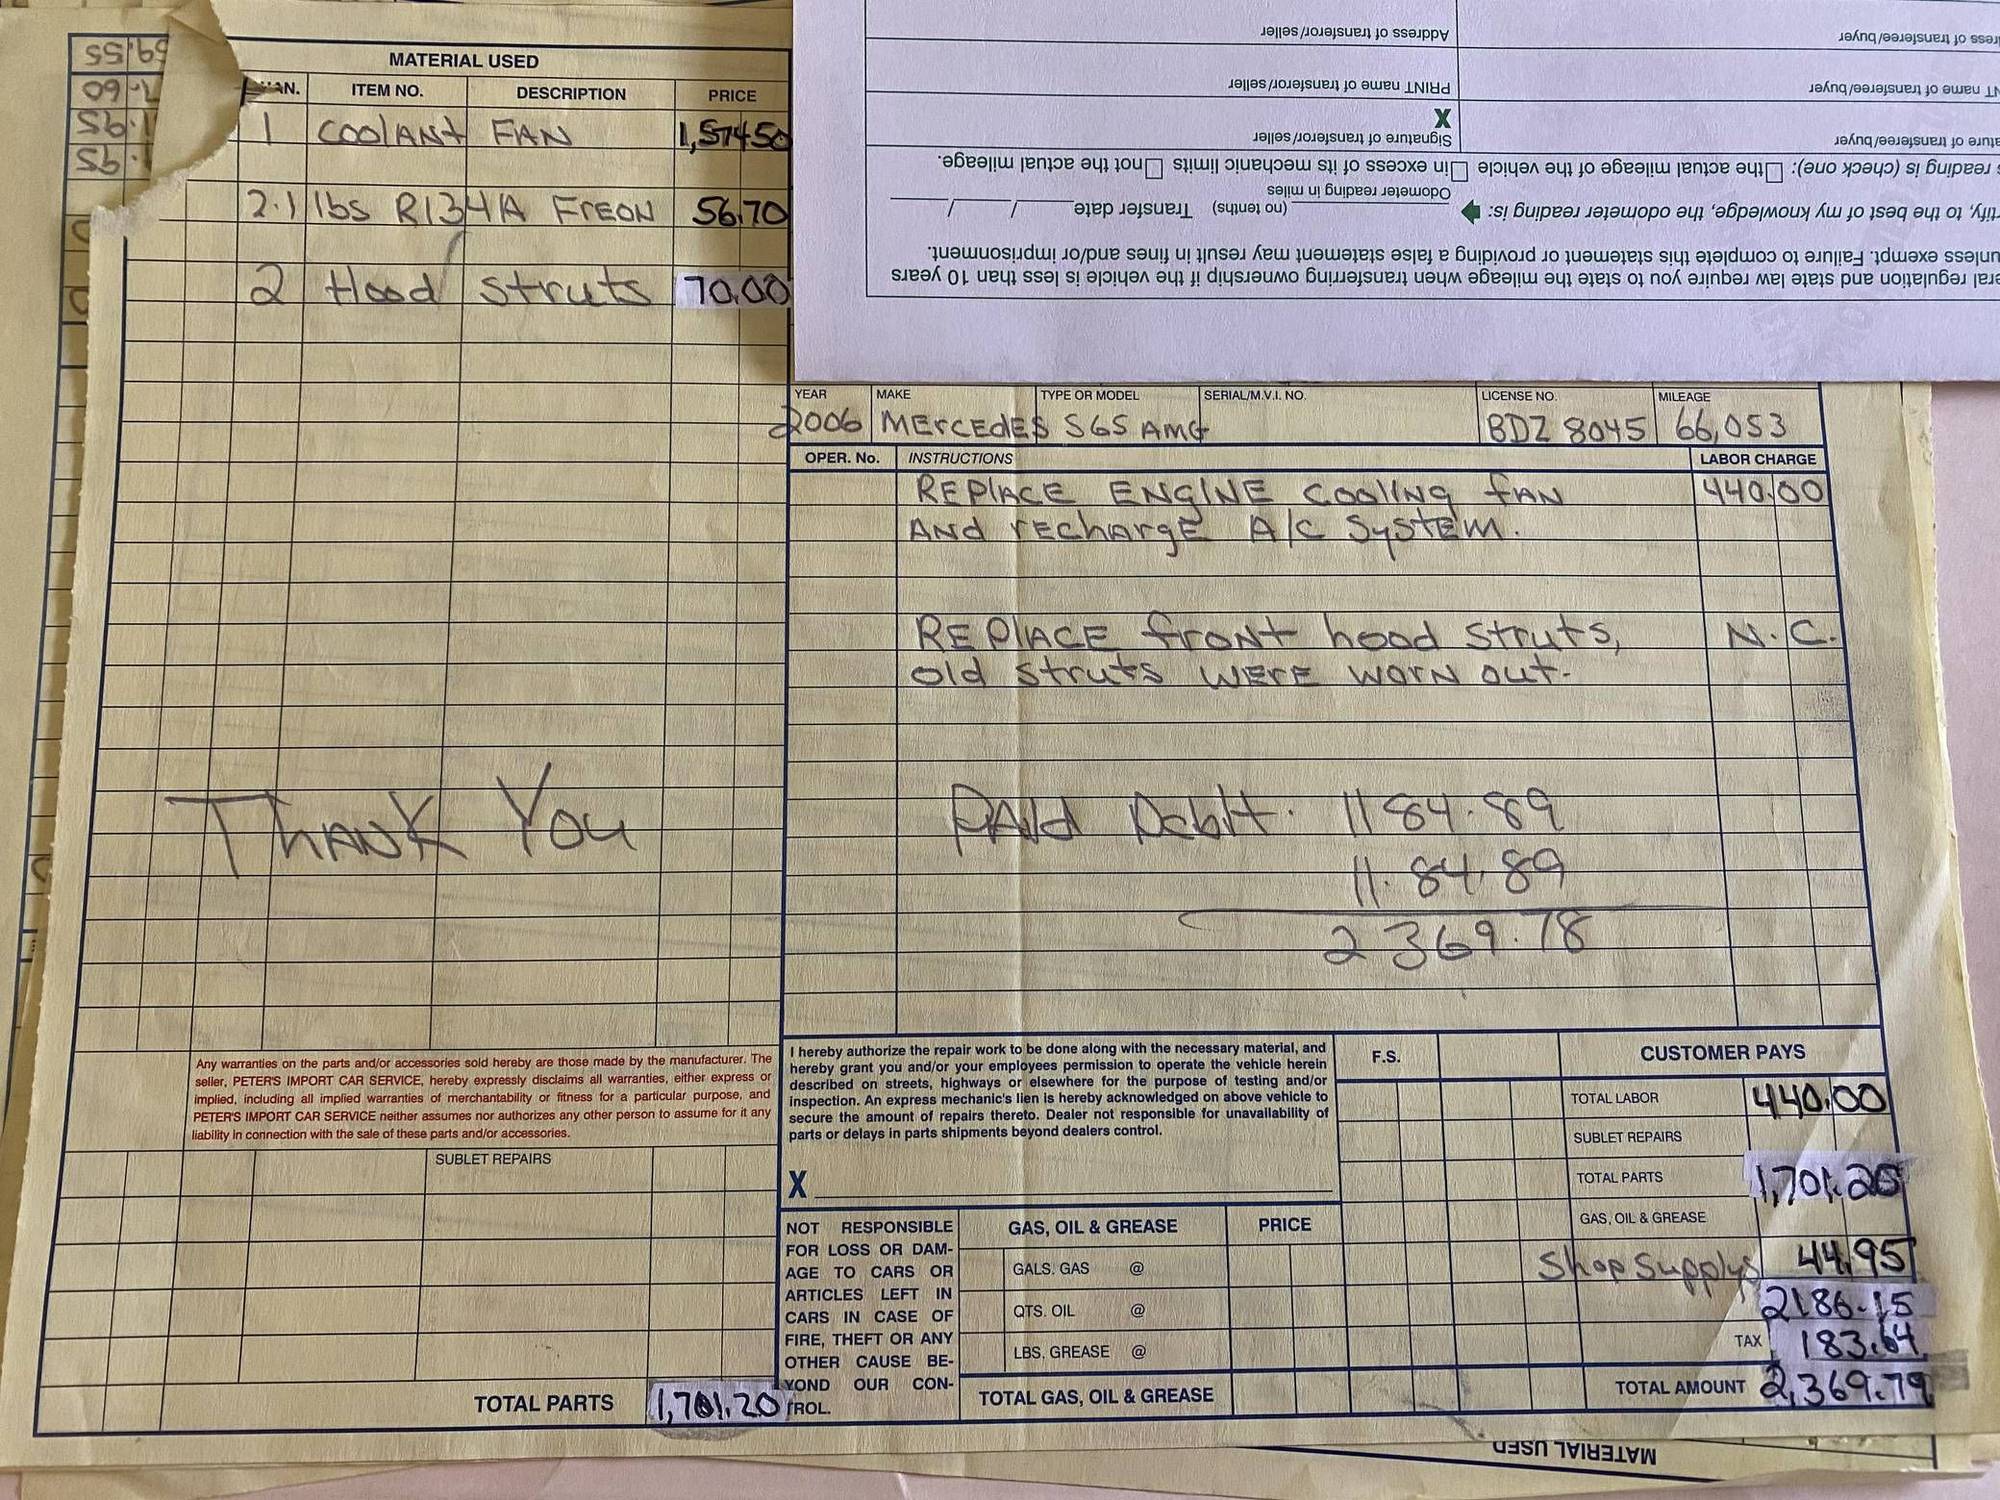 MATERIAL USED
AN. ITEM NO. DESCRIPTION PRICE
1 COOlANt FAN 1,574.50
2.1 lbs R134A FrEON 56.70
2 Hood struts 70.00
THANK YOU
Any warranties on the parts and/or accessories sold hereby are those made by the manufacturer. The
seller, PETER'S IMPORT CAR SERVICE, hereby expressly disclaims all warranties, either express or
implied, including all implied warranties of merchantability or fitness for a particular purpose, and
PETER'S IMPORT CAR SERVICE neither assumes nor authorizes any other person to assume for it any
liability in connection with the sale of these parts and/or accessories.
SUBLET REPAIRS
TOTAL PARTS 1,701.20
eral regulation and state law require you to state the mileage when transferring ownership if the vehicle is less than 10 years
unless exempt. Failure to complete this statement or providing a false statement may result in fines and/or imprisonment.
rtify, to the best of my knowledge, the odometer reading is:
Odometer reading in miles
(no tenths) Transfer date ____/____/____
reading is (check one): the actual mileage of the vehicle in excess of its mechanic limits not the actual mileage.
ature of transferee/buyer
Signature of transferor/seller
X
NT name of transferee/buyer
PRINT name of transferor/seller
ress of transferee/buyer
Address of transferor/seller
YEAR MAKE TYPE OR MODEL SERIAL/M.V.I. NO. LICENSE NO. MILEAGE
2006 MErcEdES S65 AMG BDZ 8045 66,053
OPER. No. INSTRUCTIONS LABOR CHARGE
REPlACE ENGINE Cooling fAN 440.00
ANd rEchArgE A/C SystEM.
REPlACE front hood struts, N.C.
old struts WERE WORN out.
PAId Debit. 1184.89
11.84.89
2369.78
I hereby authorize the repair work to be done along with the necessary material, and
hereby grant you and/or your employees permission to operate the vehicle herein
described on streets, highways or elsewhere for the purpose of testing and/or
inspection. An express mechanic's lien is hereby acknowledged on above vehicle to
secure the amount of repairs thereto. Dealer not responsible for unavailability of
parts or delays in parts shipments beyond dealers control.
X
NOT RESPONSIBLE
FOR LOSS OR DAM-
AGE TO CARS OR
ARTICLES LEFT IN
CARS IN CASE OF
FIRE, THEFT OR ANY
OTHER CAUSE BE-
YOND OUR CON-
TROL.
GAS, OIL & GREASE PRICE
GALS. GAS @
QTS. OIL @
LBS. GREASE @
TOTAL GAS, OIL & GREASE
F.S. CUSTOMER PAYS
TOTAL LABOR 440.00
SUBLET REPAIRS
TOTAL PARTS 1,701.20
GAS, OIL & GREASE
Shop Supplys 44.95
2186.15
TAX 183.64
TOTAL AMOUNT 2,369.79
MATERIAL USED